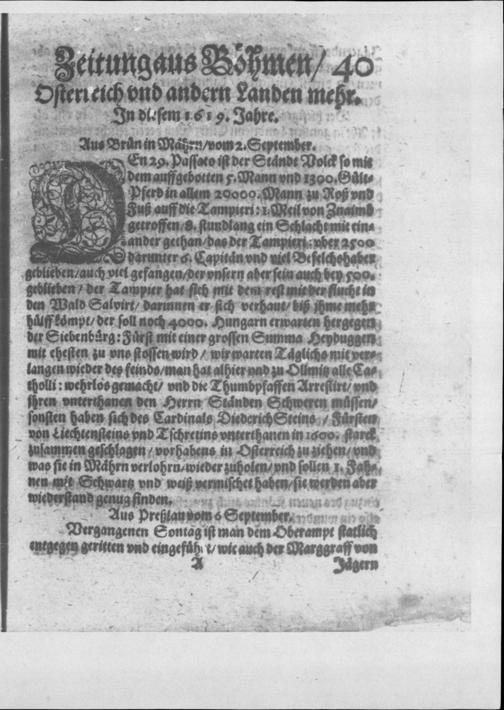 Zeitung aus Böhmen/ 40
Osterreich vnd andern Landen mehr.
In diesem 1619. Jahre.
Aus Brün in Mährn/vom 2. September.
DEn 29. Passato ist der Stände Volck so mit
dem auffgebotten 5. Mann vnd 1300. Gült-
Pferd in allem 20000. Mann zu Roß vnd
Fuß auff die Tampieri: 1. Meil von Znaimb
getroffen 8. stundlang ein Schlacht mit ein-
ander gethan/das der Tampieri: vber 2500
darunter 6. Capitän vnd viel Befelchshaber
geblieben/auch viel gefangen/der vnsern aber sein auch bey 500.
geblieben/ der Tampier hat sich mit dem rest mit der flucht in
den Wald Salvirt/ darinnen er sich verhaut/ biß ihme mehr
hülff kömpt/ der soll noch 4000. Hungarn erwarten hergegen
der Siebenbürg: Fürst mit einer grossen Summa Heyduggen
mit ehesten zu vns stossen wird/ wir warten Täglichs mit ver-
langen wieder des feinds/ man hat alhier vnd zu Ollmitz alle Ca-
tholli: wehrlos gemacht/ vnd die Thumbpfaffen Arrestirt/ vnd
ihren vnterthanen den Herrn Ständen Schweren müssen/
sonsten haben sich des Cardinals Diederichsteins / Fürsten
von Liechtensteins vnd Tschretins vnterthanen in 1600. starck
zusammen geschlagen/ vorhabens in Osterreich zu ziehen/ vnd
was sie in Mährn verlohrn/wieder zuholen/ vnd sollen 1. Fah-
nen mit Schwartz vnd weiß vermischet haben/ sie werden aber
wiederstand genug finden.
Aus Preßlau vom 6 September.
Vergangenen Sontag ist man dem Oberampt statlich
entgegen geritten vnd eingeführt/ wie auch der Marggraff von
A Jägern